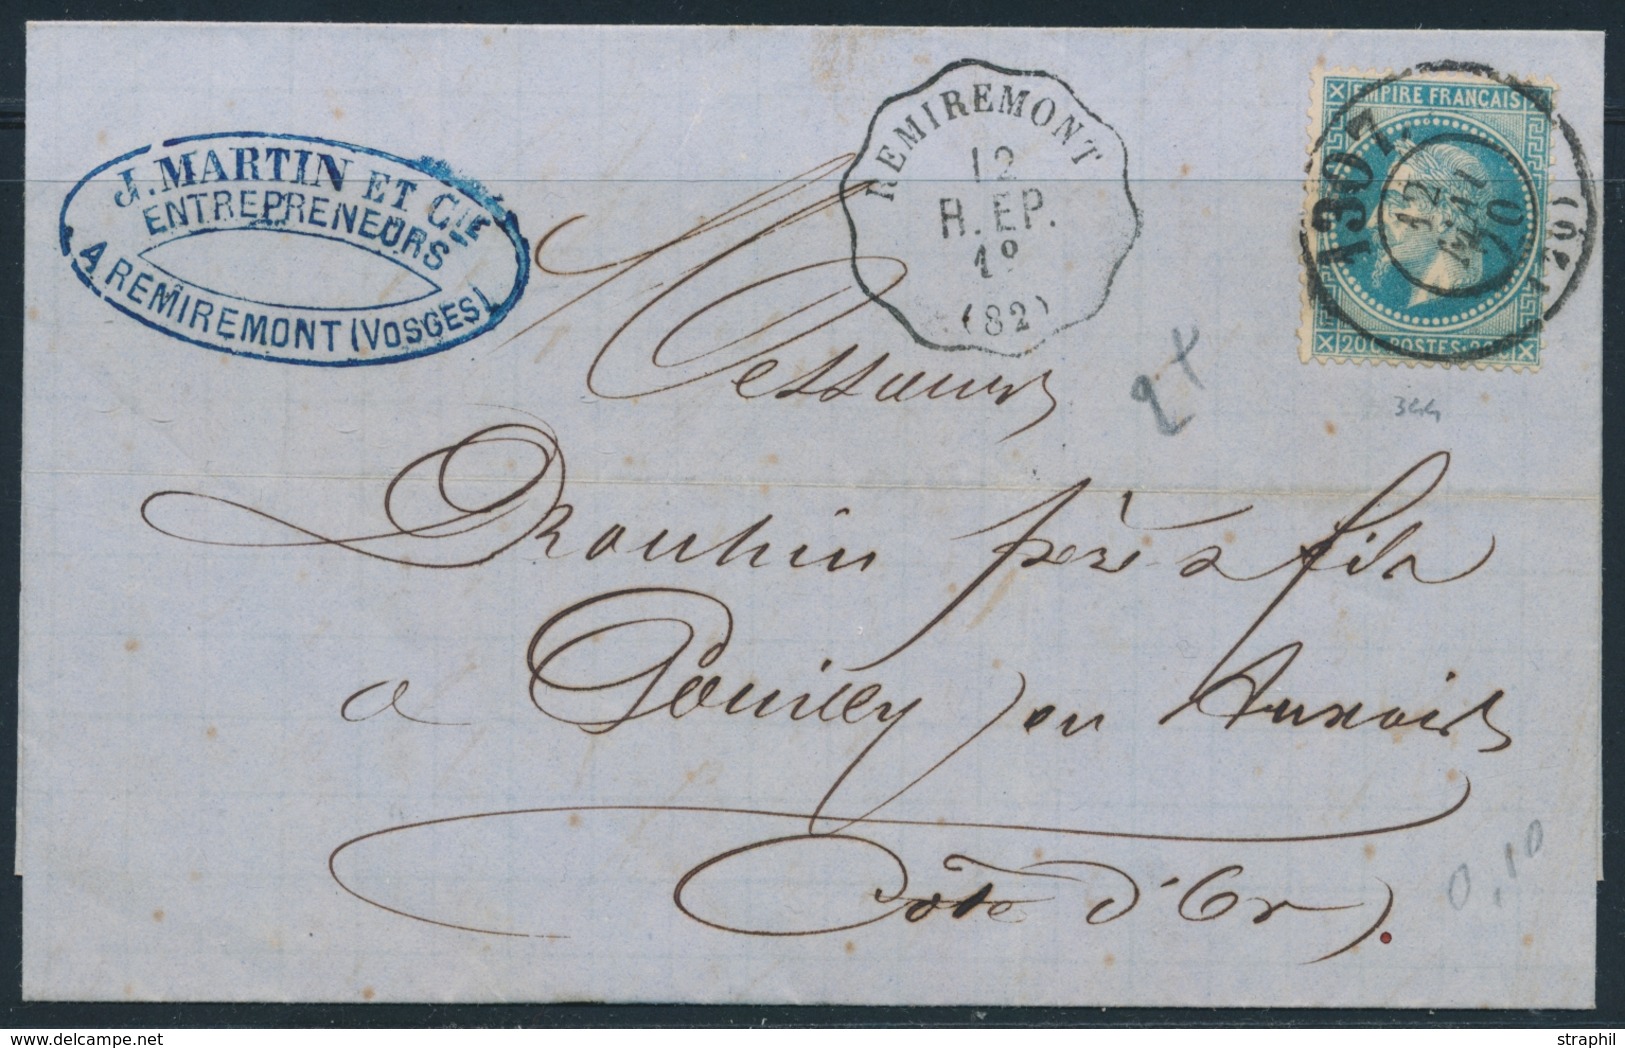 J. MARTIN ET CIE
ENTREPRENEURS
A REMIREMONT (VOSGES)
REMIREMONT
12
R. EP.
1°
(82)
EMPIRE FRANCAIS
1307.
12
MAI
70
(20)
20 C. POSTES. 20 C
2+
344
Messieurs
Drouhin père & fils
a Pouilly en Auxois
Côte d'Or
0,10
straphil
www.delcampe.net